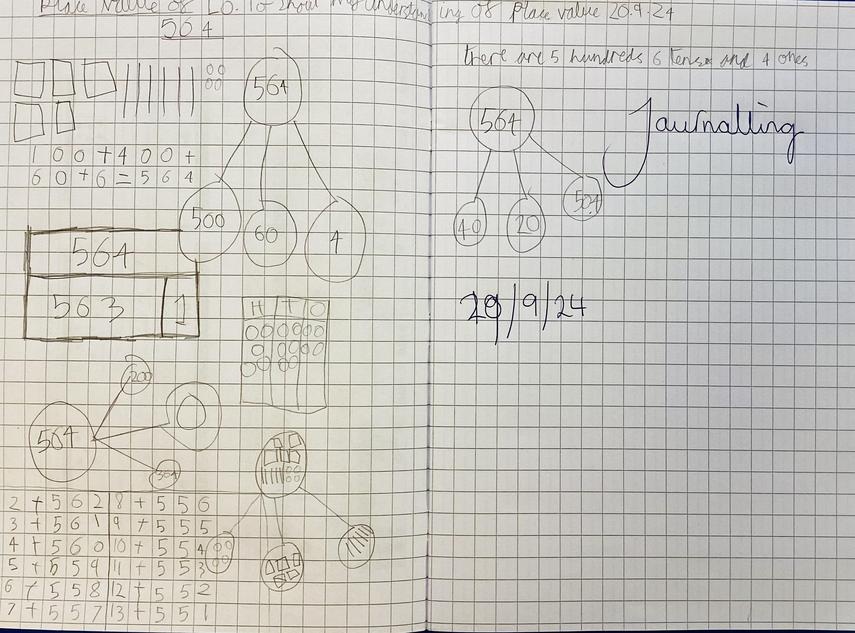 Place Value of LO. To show my understanding of Place value 20.9.24
564
564
100+400+
60+6=564
500
60
4
564
563 1
H T O
564
200
0
364
2+562 8+556
3+561 9+555
4+560 10+554
5+559 11+553
6+558 12+552
7+557 13+551
there are 5 hundreds 6 tens and 4 ones
564
Journalling
40
20
504
29/9/24